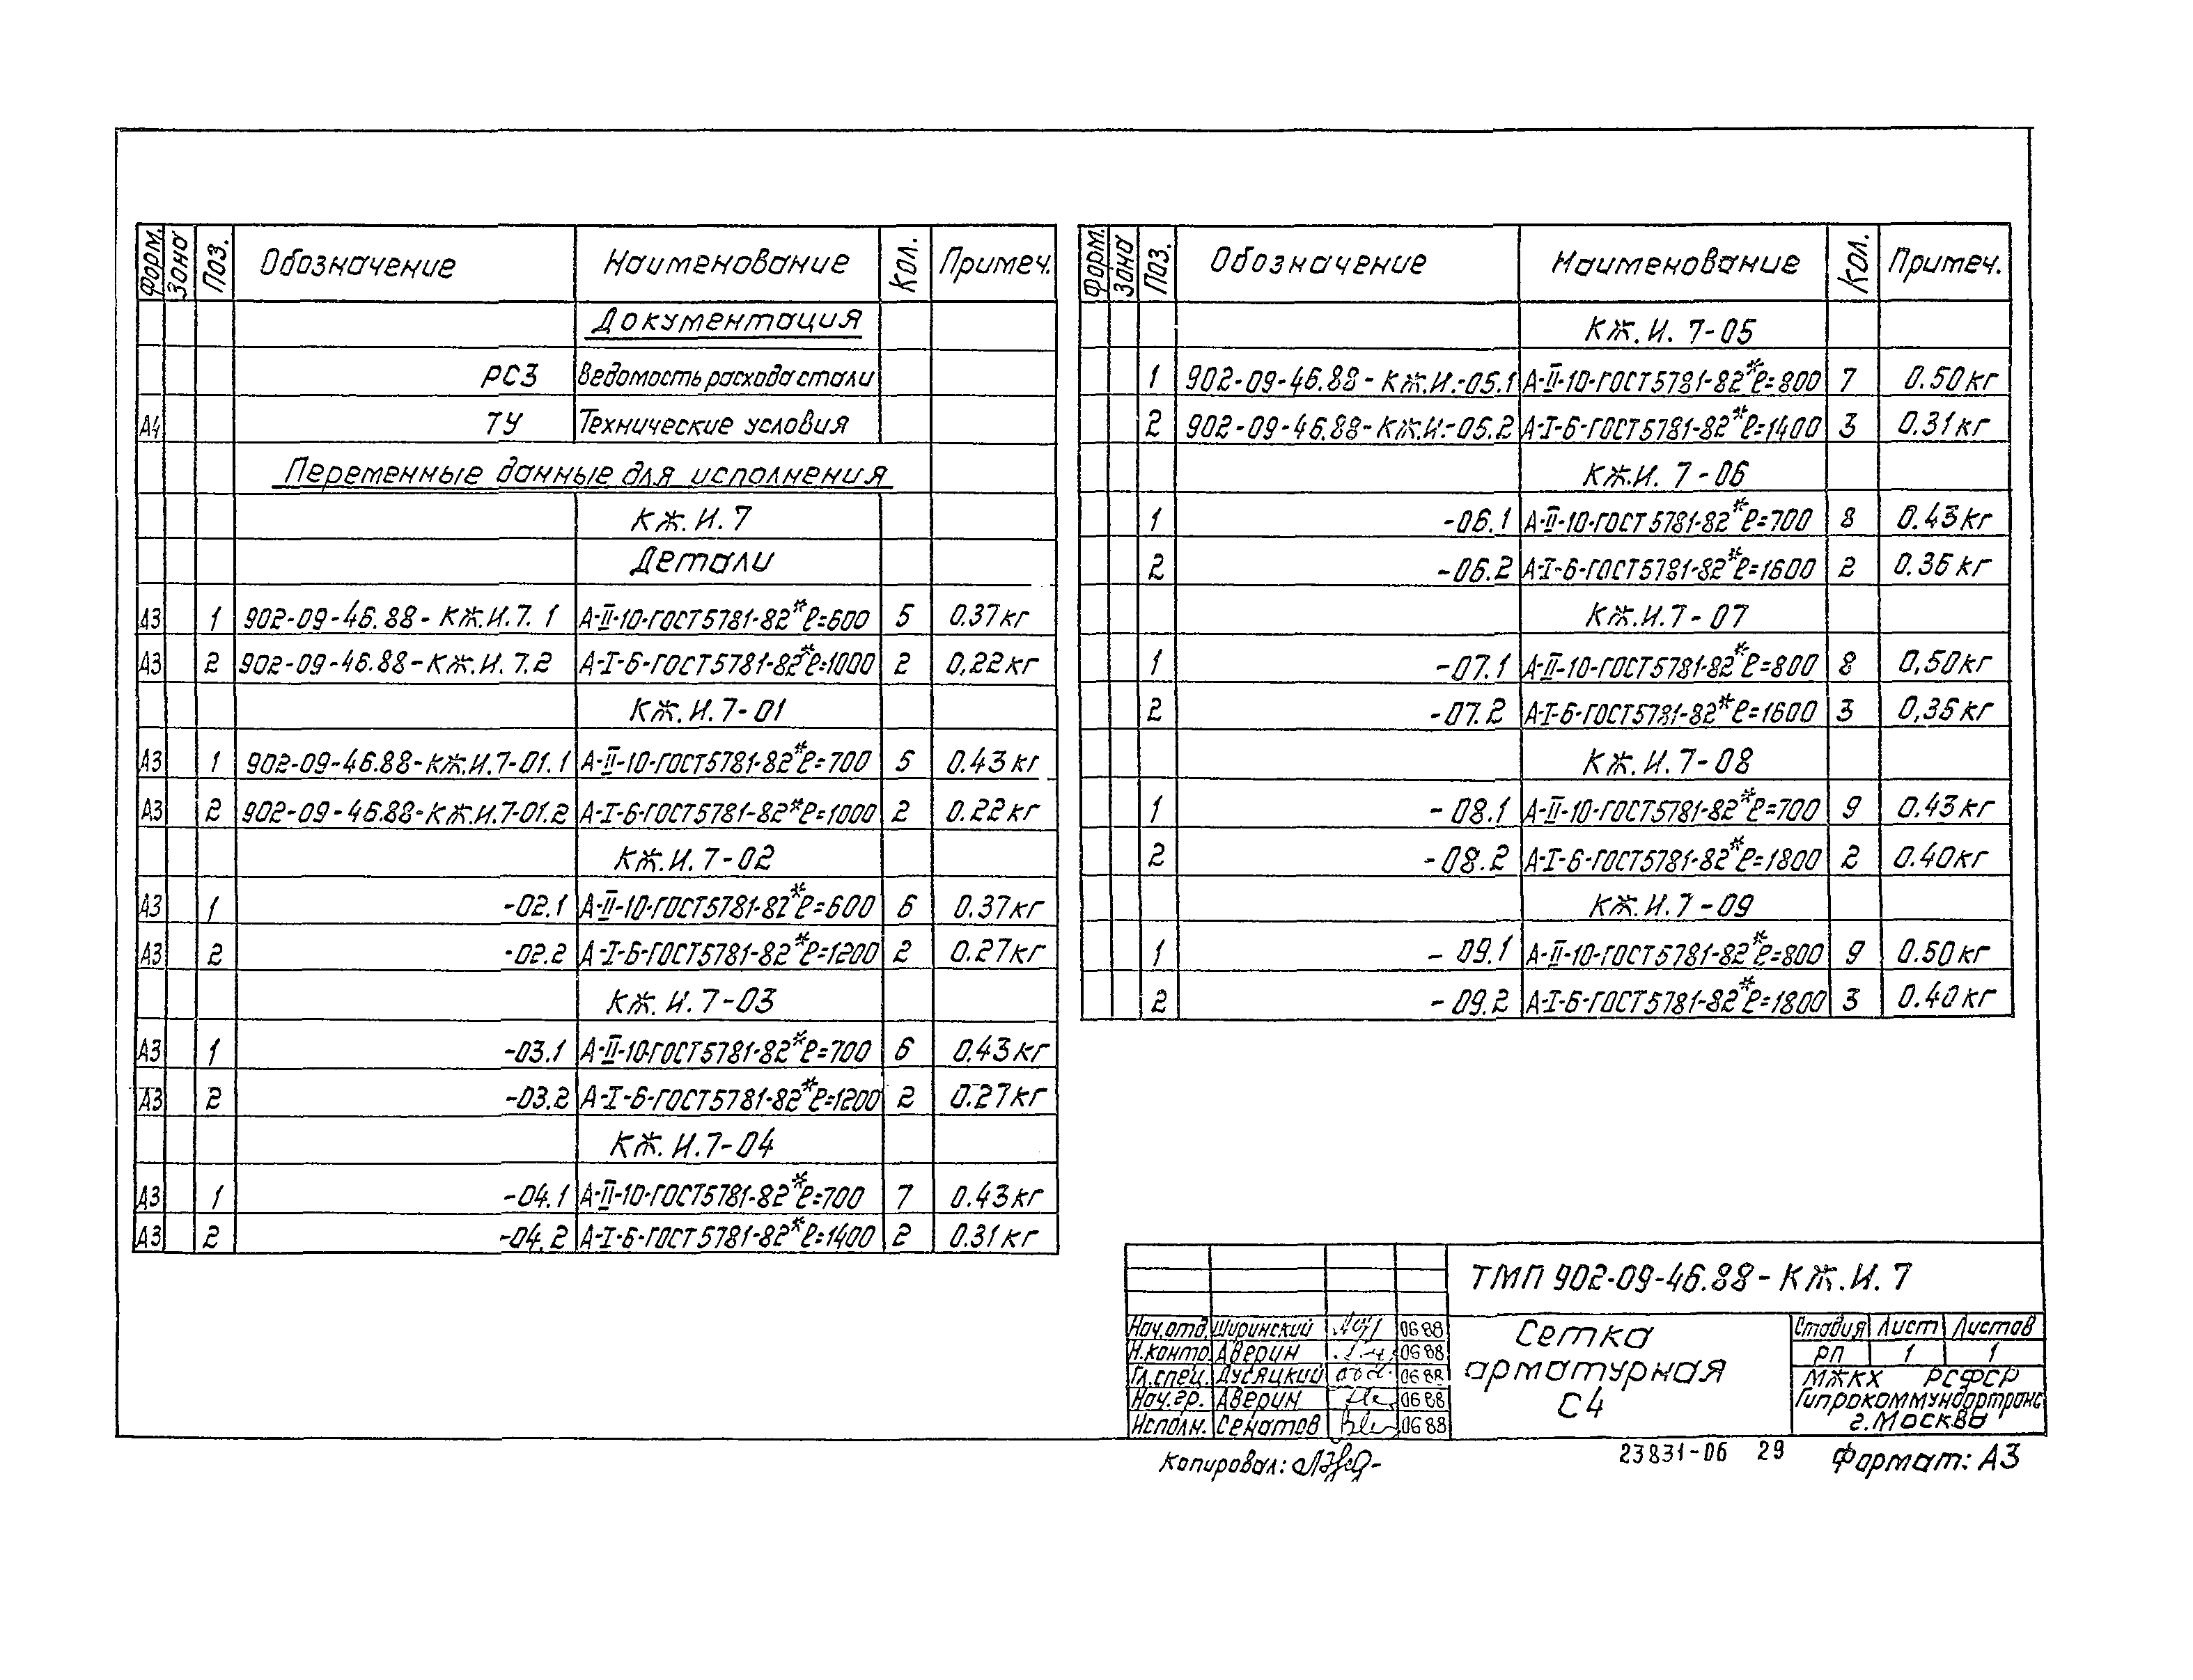 Форм. Зона Поз. Обозначение Наименование Кол. Примеч.
Документация
РС3 Ведомость расхода стали
А4 ТУ Технические условия
Переменные данные для исполнения
КЖ.И.7
Детали
А3 1 902-09-46.88-КЖ.И.7.1 А-II-10-ГОСТ5781-82* ℓ=600 5 0.37кг
А3 2 902-09-46.88-КЖ.И.7.2 А-I-6-ГОСТ5781-82* ℓ=1000 2 0,22кг
КЖ.И.7-01
А3 1 902-09-46.88-КЖ.И.7-01.1 А-II-10-ГОСТ5781-82* ℓ=700 5 0.43кг
А3 2 902-09-46.88-КЖ.И.7-01.2 А-I-6-ГОСТ5781-82* ℓ=1000 2 0.22кг
КЖ.И.7-02
А3 1 -02.1 А-II-10-ГОСТ5781-82* ℓ=600 6 0.37кг
А3 2 -02.2 А-I-6-ГОСТ5781-82* ℓ=1200 2 0.27кг
КЖ.И.7-03
А3 1 -03.1 А-II-10-ГОСТ5781-82* ℓ=700 6 0.43кг
А3 2 -03.2 А-I-6-ГОСТ5781-82* ℓ=1200 2 0.27кг
КЖ.И.7-04
А3 1 -04.1 А-II-10-ГОСТ5781-82* ℓ=700 7 0.43кг
А3 2 -04.2 А-I-6-ГОСТ5781-82* ℓ=1400 2 0.31кг
Форм. Зона Поз. Обозначение Наименование Кол. Примеч.
КЖ.И.7-05
1 902-09-46.88-КЖ.И.-05.1 А-II-10-ГОСТ5781-82* ℓ=800 7 0.50кг
2 902-09-46.88-КЖ.И.-05.2 А-I-6-ГОСТ5781-82* ℓ=1400 3 0.31кг
КЖ.И.7-06
1 -06.1 А-II-10-ГОСТ5781-82* ℓ=700 8 0.43кг
2 -06.2 А-I-6-ГОСТ5781-82* ℓ=1600 2 0.36кг
КЖ.И.7-07
1 -07.1 А-II-10-ГОСТ5781-82* ℓ=800 8 0,50кг
2 -07.2 А-I-6-ГОСТ5781-82* ℓ=1600 3 0,36кг
КЖ.И.7-08
1 -08.1 А-II-10-ГОСТ5781-82* ℓ=700 9 0,43кг
2 -08.2 А-I-6-ГОСТ5781-82* ℓ=1800 2 0.40кг
КЖ.И.7-09
1 -09.1 А-II-10-ГОСТ5781-82* ℓ=800 9 0.50кг
2 -09.2 А-I-6-ГОСТ5781-82* ℓ=1800 3 0.40кг
ТМП 902-09-46.88-КЖ.И.7
Нач.отд. Ширинский 06 88
Н.контр. Аверин 06 88
Гл.спец. Дусяцкий 06 88
Нач.гр. Аверин 06 88
Исполн. Сенатов 06 88
Сетка
арматурная
С4
Стадия Лист Листов
РП 1 1
МЖКХ РСФСР
Гипрокоммундортранс
г.Москва
Копировал:
23831-06 29
Формат: А3